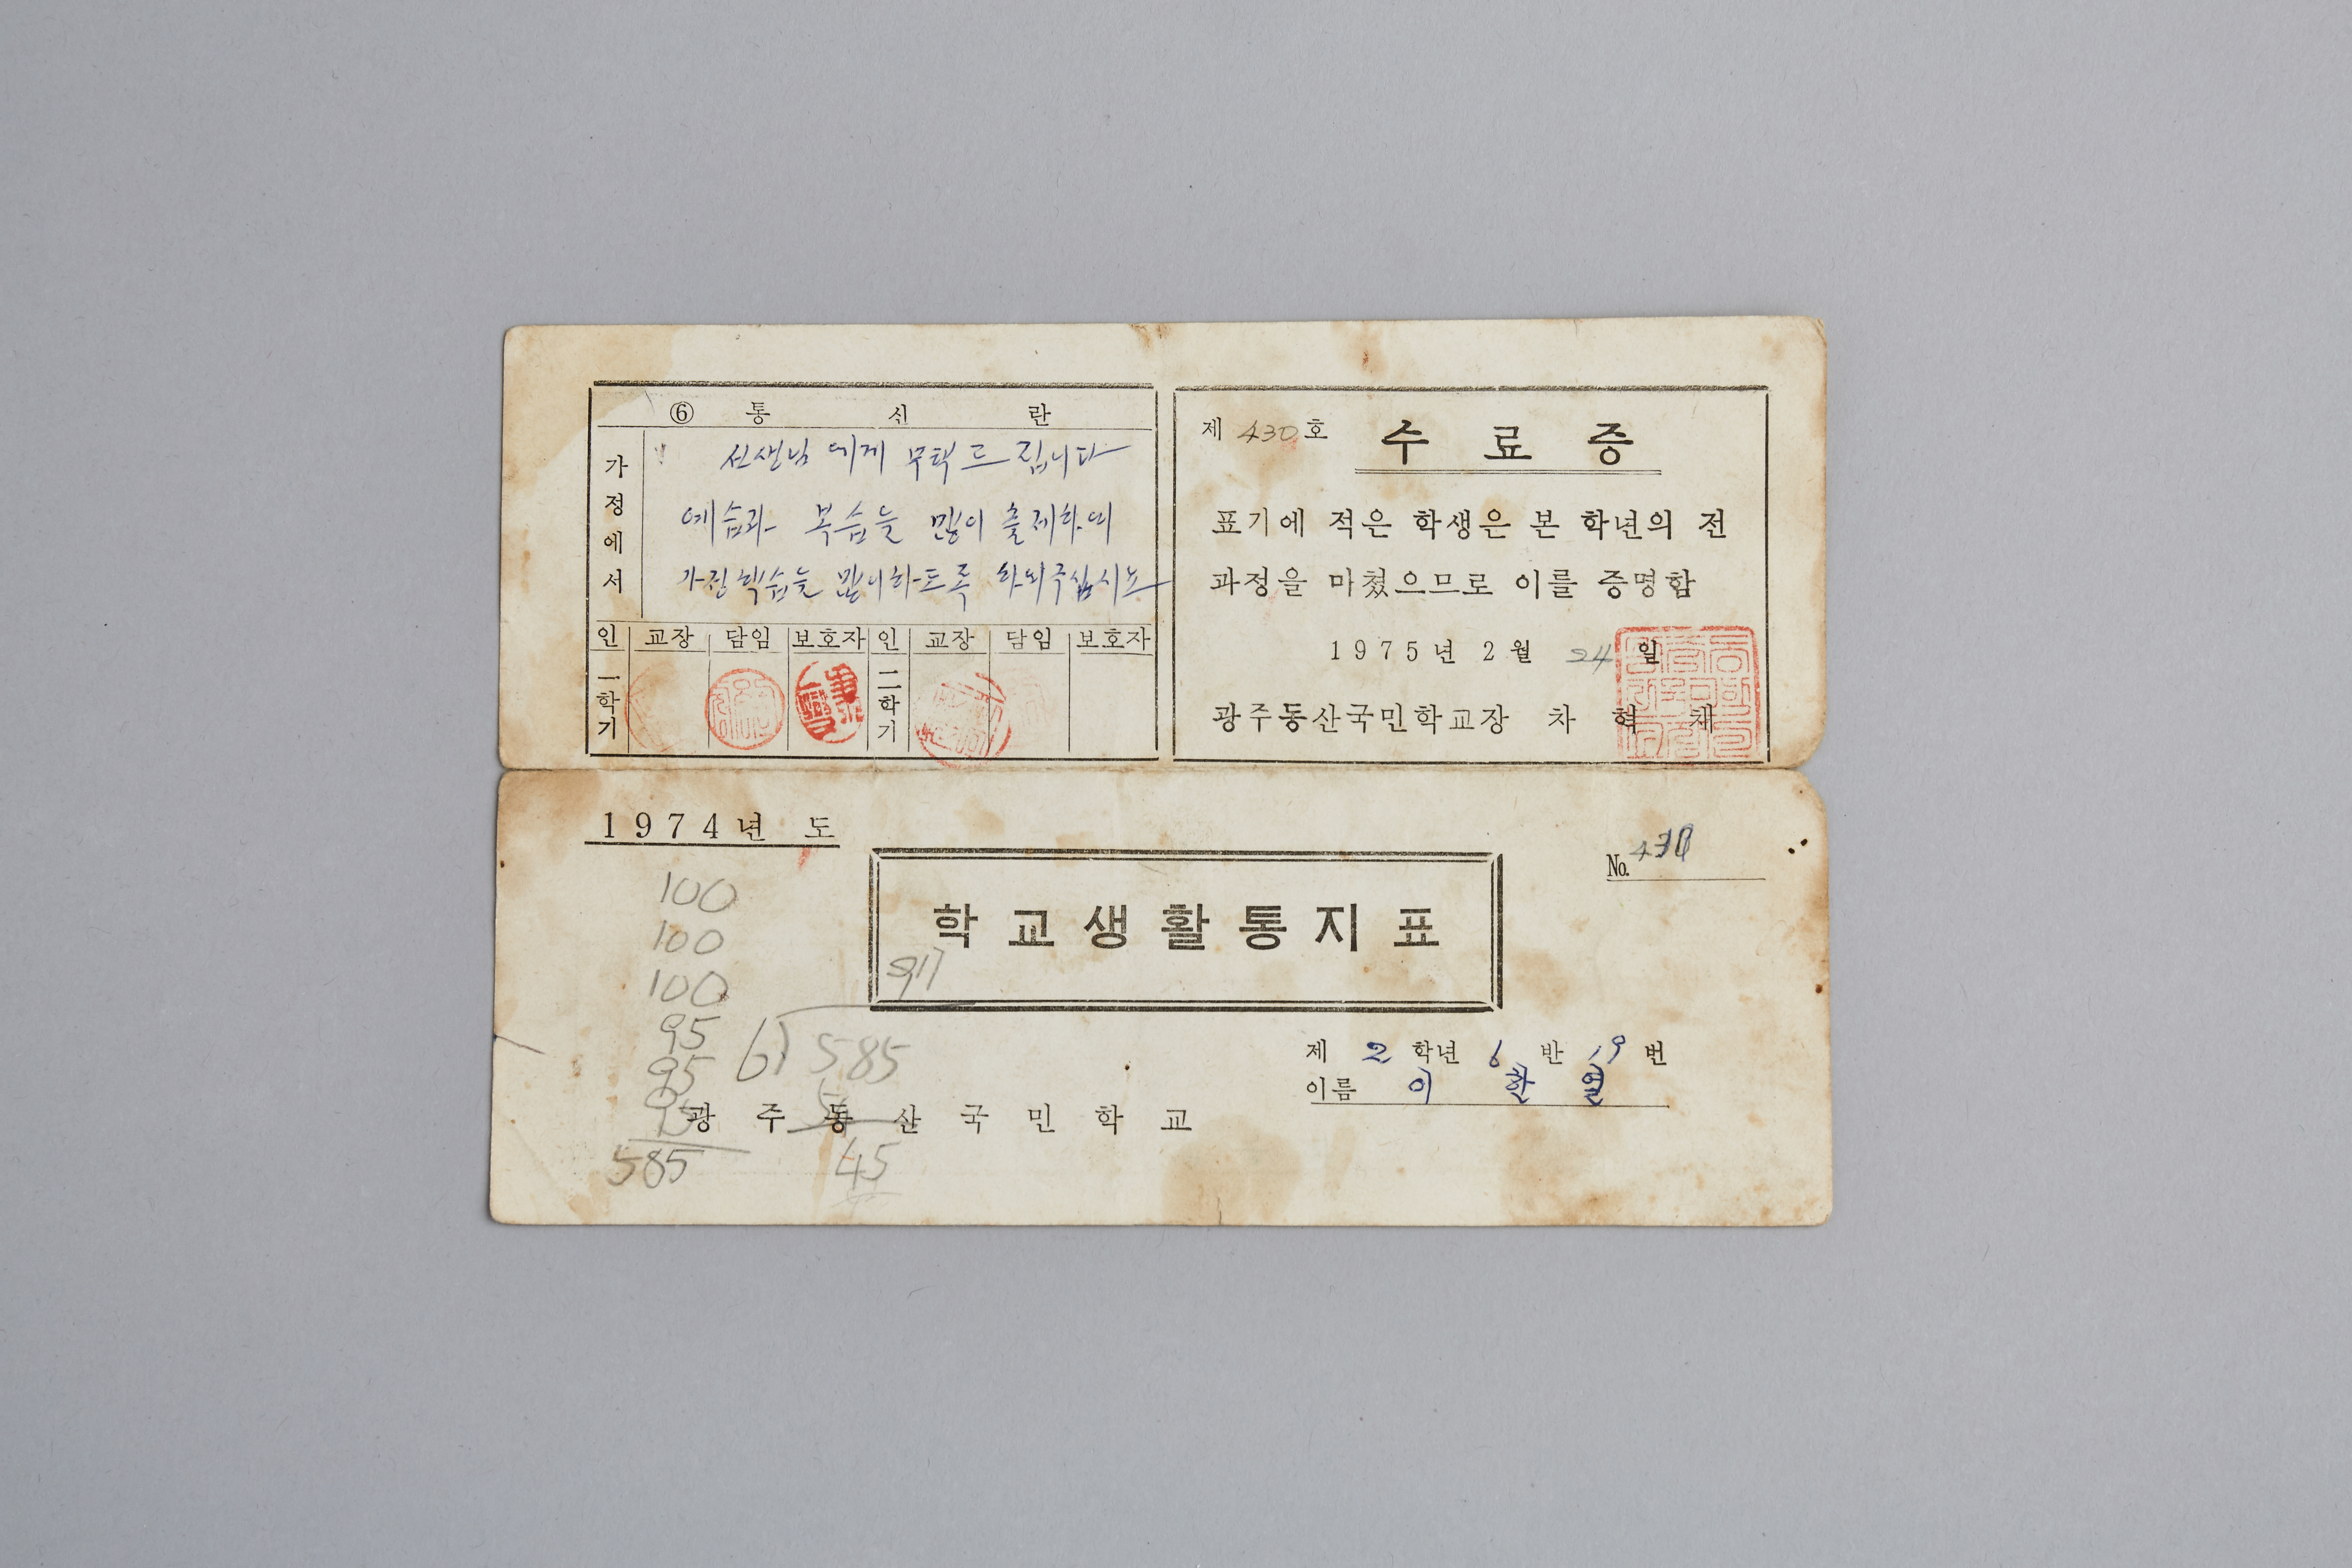 ⑥ 통 신 란
가정에서
선생님 에게 부탁드립니다
예습과 복습을 많이 출제하여
가정학습을 많이하도록 하여주십시요
인 교장 담임 보호자 인 교장 담임 보호자
一학기 二학기
제 430 호 수료증
표기에 적은 학생은 본 학년의 전
과정을 마쳤으므로 이를 증명함
1975년 2월 24 일
광주동산국민학교장 차 혁 채
1974년 도
No.
학교생활통지표
100
100
100
95
95
95
585
917
6) 585
54
45
제 2 학년 6 반 19 번
이름 이 한 열
광주동산국민학교